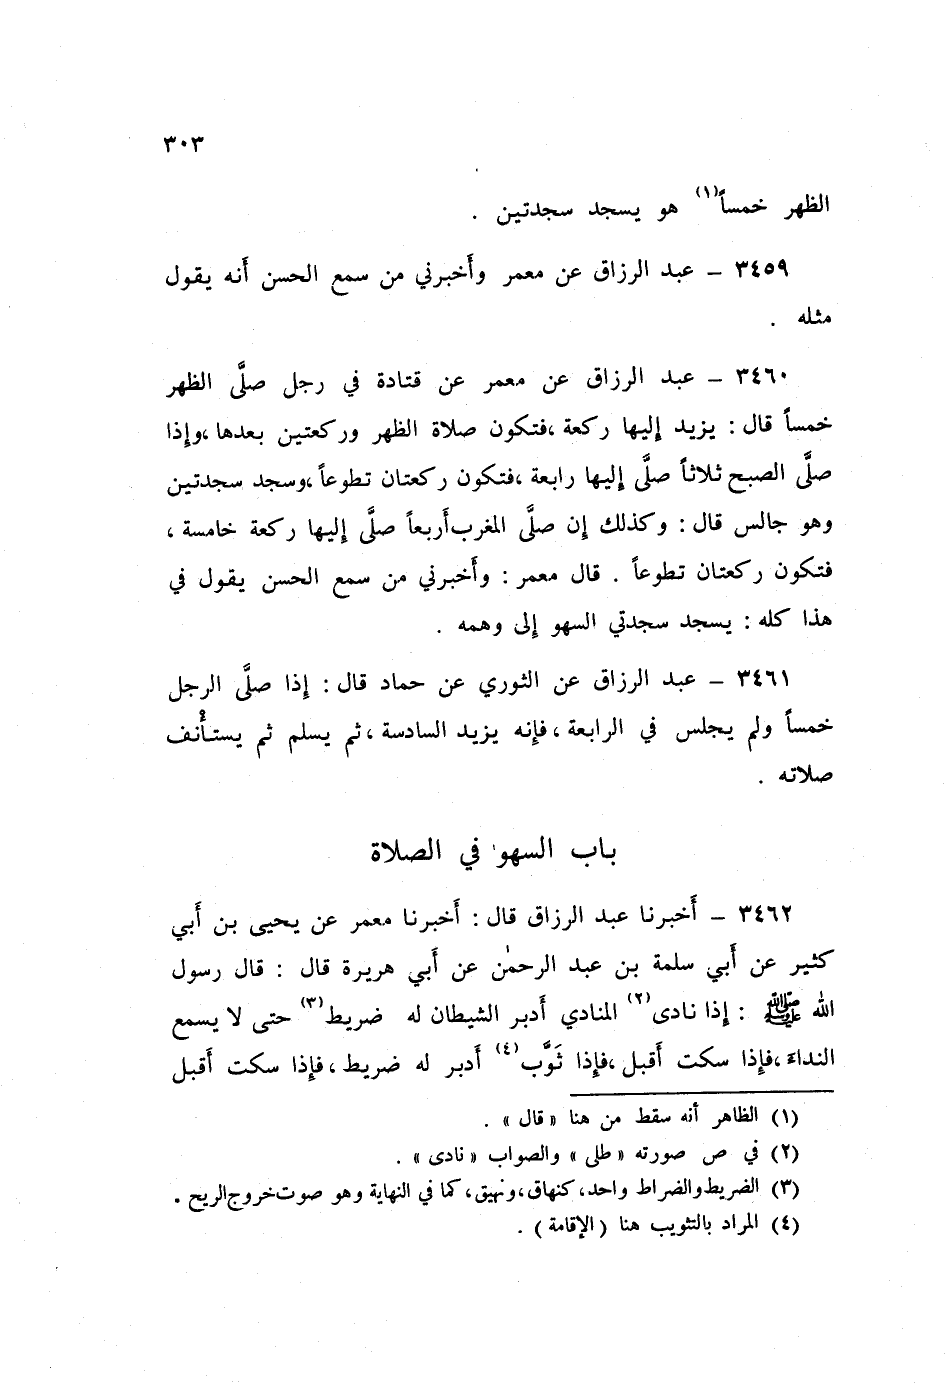 ٣٠٣
الظهر خمساً(١) هو يسجد سجدتين .
٣٤٥٩ – عبد الرزاق عن معمر وأخبرني من سمع الحسن أنه يقول
مثله .
٣٤٦٠ – عبد الرزاق عن معمر عن قتادة في رجل صلَّى الظهر
خمساً قال : يزيد إليها ركعة ،فتكون صلاة الظهر وركعتين بعدها ،وإذا
صلَّى الصبح ثلاثاً صلَّى إليها رابعة ،فتكون ركعتان تطوعاً ،وسجد سجدتين
وهو جالس قال : وكذلك إن صلَّى المغرب أربعاً صلَّى إليها ركعة خامسة ،
فتكون ركعتان تطوعاً . قال معمر : وأخبرني من سمع الحسن يقول في
هذا كله : يسجد سجدتي السهو إلى وهمه .
٣٤٦١ – عبد الرزاق عن الثوري عن حماد قال : إذا صلَّى الرجل
خمساً ولم يجلس في الرابعة ،فإنه يزيد السادسة ،ثم يسلم ثم يستأنف
صلاته .
باب السهو في الصلاة
٣٤٦٢ – أخبرنا عبد الرزاق قال : أخبرنا معمر عن يحيى بن أبي
كثير عن أبي سلمة بن عبد الرحمٰن عن أبي هريرة قال : قال رسول
الله ﷺ : إذا نادى(٢) المنادي أدبر الشيطان له ضريط(٣) حتى لا يسمع
النداء ،فإذا سكت أقبل ،فإذا ثَوَّب(٤) أدبر له ضريط ،فإذا سكت أقبل
(١) الظاهر أنه سقط من هنا « قال » .
(٢) في ص صورته « طلى » والصواب « نادى » .
(٣) الضريط والضراط واحد، كنهاق، ونهيق، كما في النهاية وهو صوت خروج الريح .
(٤) المراد بالتثويب هنا ( الإقامة ) .